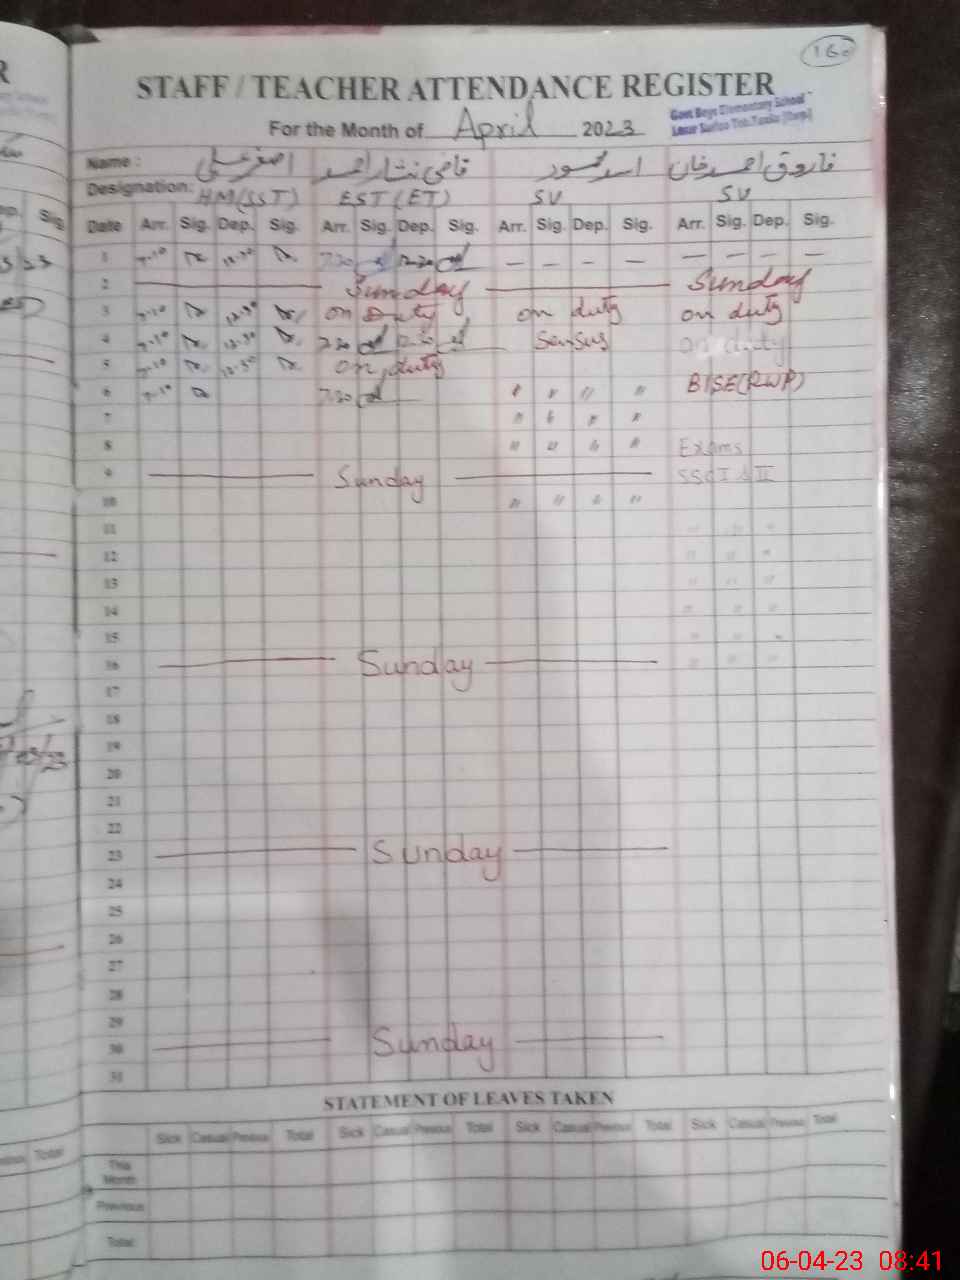 160
STAFF / TEACHER ATTENDANCE REGISTER
For the Month of April 2023
Govt Boys Elementary School
Name : اصغر علی قاضی نثار احمد اسد محمود فاروق احمد خان
Designation: HM(SST) EST(ET) SV SV
Date Arr. Sig. Dep. Sig. Arr. Sig. Dep. Sig. Arr. Sig. Dep. Sig. Arr. Sig. Dep. Sig.
1 7-10 12-30 7.20 12.20 — — — — — — — —
2 Sunday Sunday
3 7-10 12-30 on Duty on duty on duty
4 7-10 12-30 7.20 12.30 Sensus on duty
5 7-10 12-30 on duty
6 7-10 7.20 " " " " BISE(RWP)
7 " " " "
8 " " " " Exams
9 Sunday SSC I & II
10 " " " "
11 " " "
12 " " "
13 " " "
14 " " "
15 " " "
16 Sunday " " "
17
18
19
20
21
22
23 Sunday
24
25
26
27
28
29
30 Sunday
31
STATEMENT OF LEAVES TAKEN
Sick Casual Previous Total Sick Casual Previous Total Sick Casual Previous Total Sick Casual Previous Total
This Month
Previous
Total
06-04-23 08:41